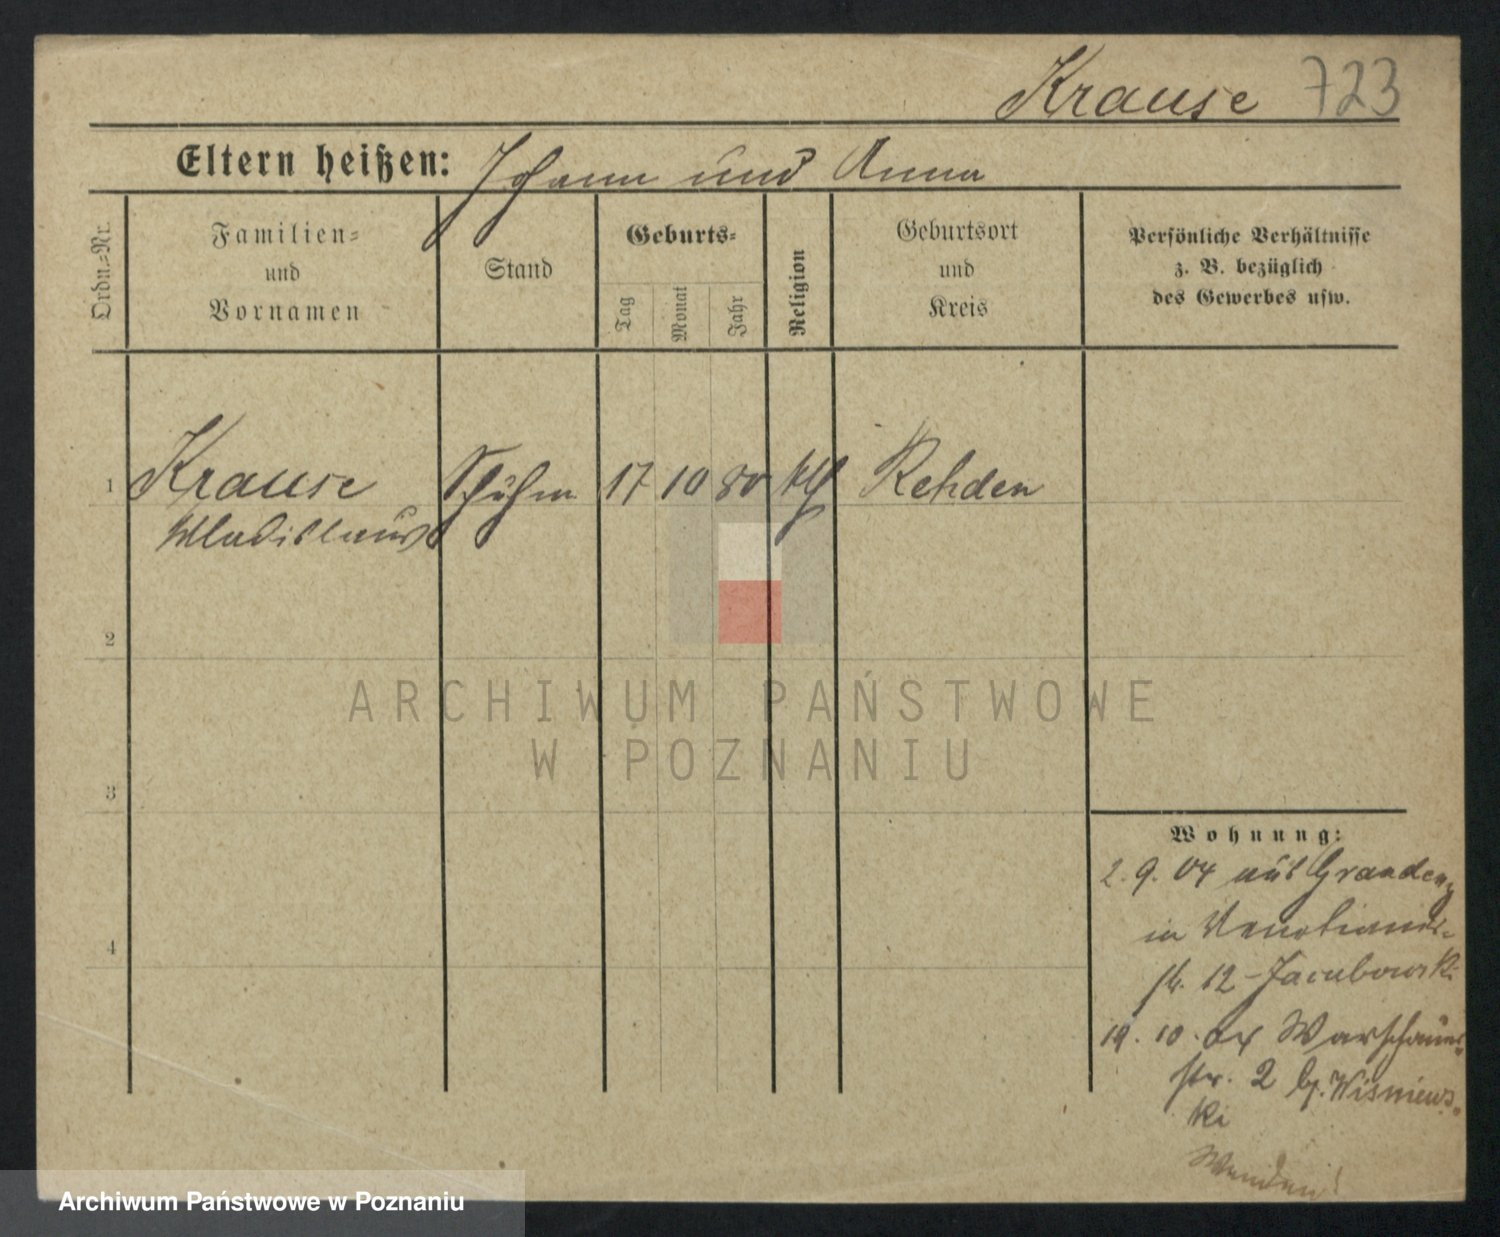 Krause 723
Eltern heißen: Johann und Anna
Ordn.-Nr.
Familien-
und
Vornamen
Stand
Geburts-
Tag
Monat
Jahr
Religion
Geburtsort
und
Kreis
Persönliche Verhältnisse
z. B. bezüglich
des Gewerbes usw.
1 Krause Schuhm 17 10 80 kth Rehden
Wladislaus
2
3
4
Wohnung:
2. 9. 04 aus Graudenz
in Venetianer-
str. 12 - Jacubowski
19. 10. 04 Warschauer-
str. 2 b. Wisniews-
ki
ARCHIWUM PAŃSTWOWE
W POZNANIU
Archiwum Państwowe w Poznaniu